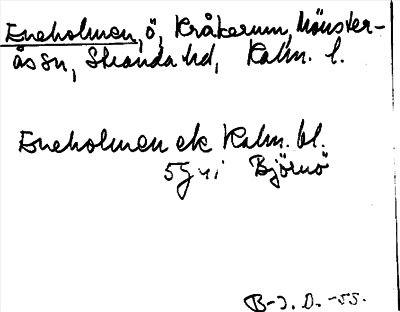 Eneholmen, ö, Kråkerum, Mönster-
ås sn, Stranda hd, Kalm. l.
Eneholmen ek Kalm. bl.
5G Björnö
B-J. D. -55.